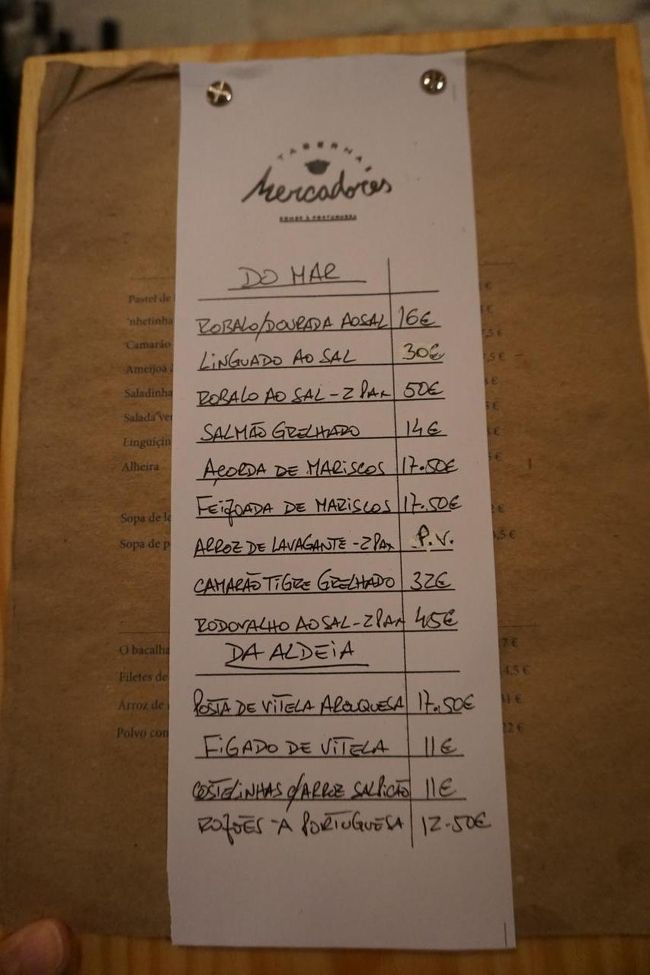 TABERNA
Mercadores
DO MAR
ROBALO/DOURADA AO SAL 16€
LINGUADO AO SAL 30€
ROBALO AO SAL - 2 PAX 50€
SALMÃO GRELHADO 14€
AÇORDA DE MARISCOS 17.50€
FEIJOADA DE MARISCOS 17.50€
ARROZ DE LAVAGANTE - 2 PAX P.V.
CAMARÃO TIGRE GRELHADO 32€
RODOVALHO AO SAL - 2 PAX 45€
DA ALDEIA
POSTA DE VITELA AROUQUESA 17.50€
FIGADO DE VITELA 11€
COSTELINHAS C/ARROZ SALPICÃO 11€
ROJOES - A PORTUGUESA 12.50€
Pastel de
Camarão
Ameijoa
Saladinha
Salada
Linguiçin
Alheira
Sopa de
Sopa de
O bacalha
Filetes de
Arroz de
Polvo con